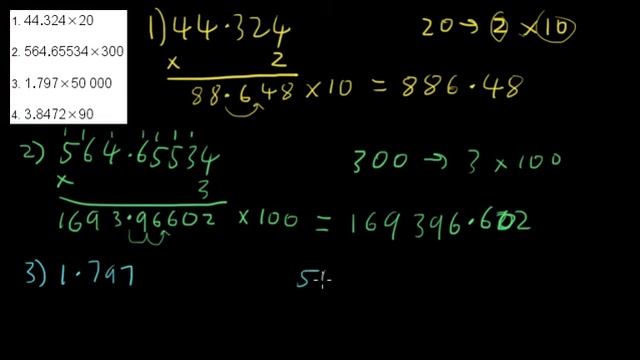 1. 44.324×20
2. 564.65534×300
3. 1.797×50 000
4. 3.8472×90
1) 44.324
× 2
88.648 ×10 = 886.48
20 → 2 ×10
2) 564.65534
× 3
1693.96602 ×100 = 169396.602
300 → 3 ×100
3) 1.797
5